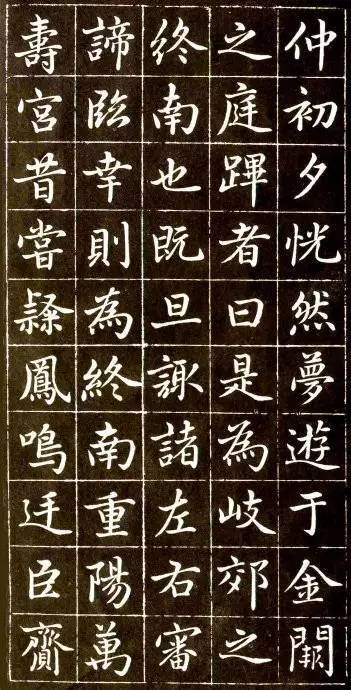 仲初夕恍然夢遊于金闕
之庭蹕者曰是為岐郊之
終南也既旦諏諸左右審
諦臨幸則為終南重陽萬
壽宮昔嘗隸鳳鳴廷臣齎